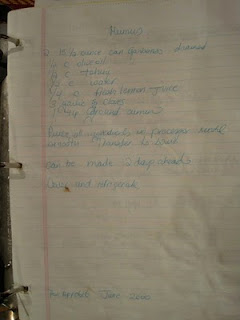 Humus
2 15½ ounce can garbanzos drained
c olive oil
c tahini
c water
c fresh lemon juice
3 garlic cloves
1 tsp ground cumin
Puree all ingredients in processor until
smooth. Transfer to bowl
Can be made 2 days ahead
Cover and refrigerate
June 2000